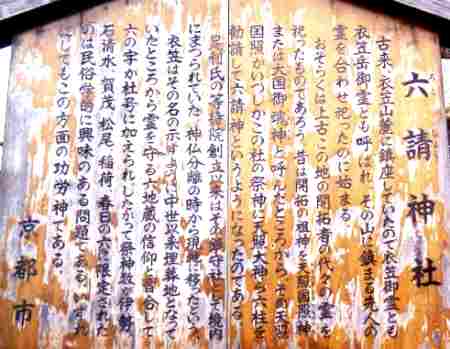 六請神社
古来、衣笠山麓に鎮座していたので衣笠御霊とも
衣笠岳御霊とも呼ばれ、その山に鎮まる先人の
霊を合わせ祀ったのに始まる。
おそらくは上古この地の開拓者の代々の霊を
祀ったものであろう。昔は開拓の祖神を天照国照神
または天国御魂神と呼んだところから、天照
国照がいつしかこの社の祭神に天照大神ら六柱を
勧請して六請神というようになったのである。
足利氏の等持院創立以来はその鎮守社として境内
にまつられていたが神仏分離の時から現地に移ったという。
衣笠はその名の示すように中世以来埋葬地となって
いたところから霊を守る六地蔵の信仰と習合して
六の字が社号に加えられしたがって祭神数が伊勢
石清水、賀茂、松尾、稲荷、春日の六に限定された
のは民俗学的に興味のある問題である。いずれ
にしてもこの方面の功労神である。
京都市